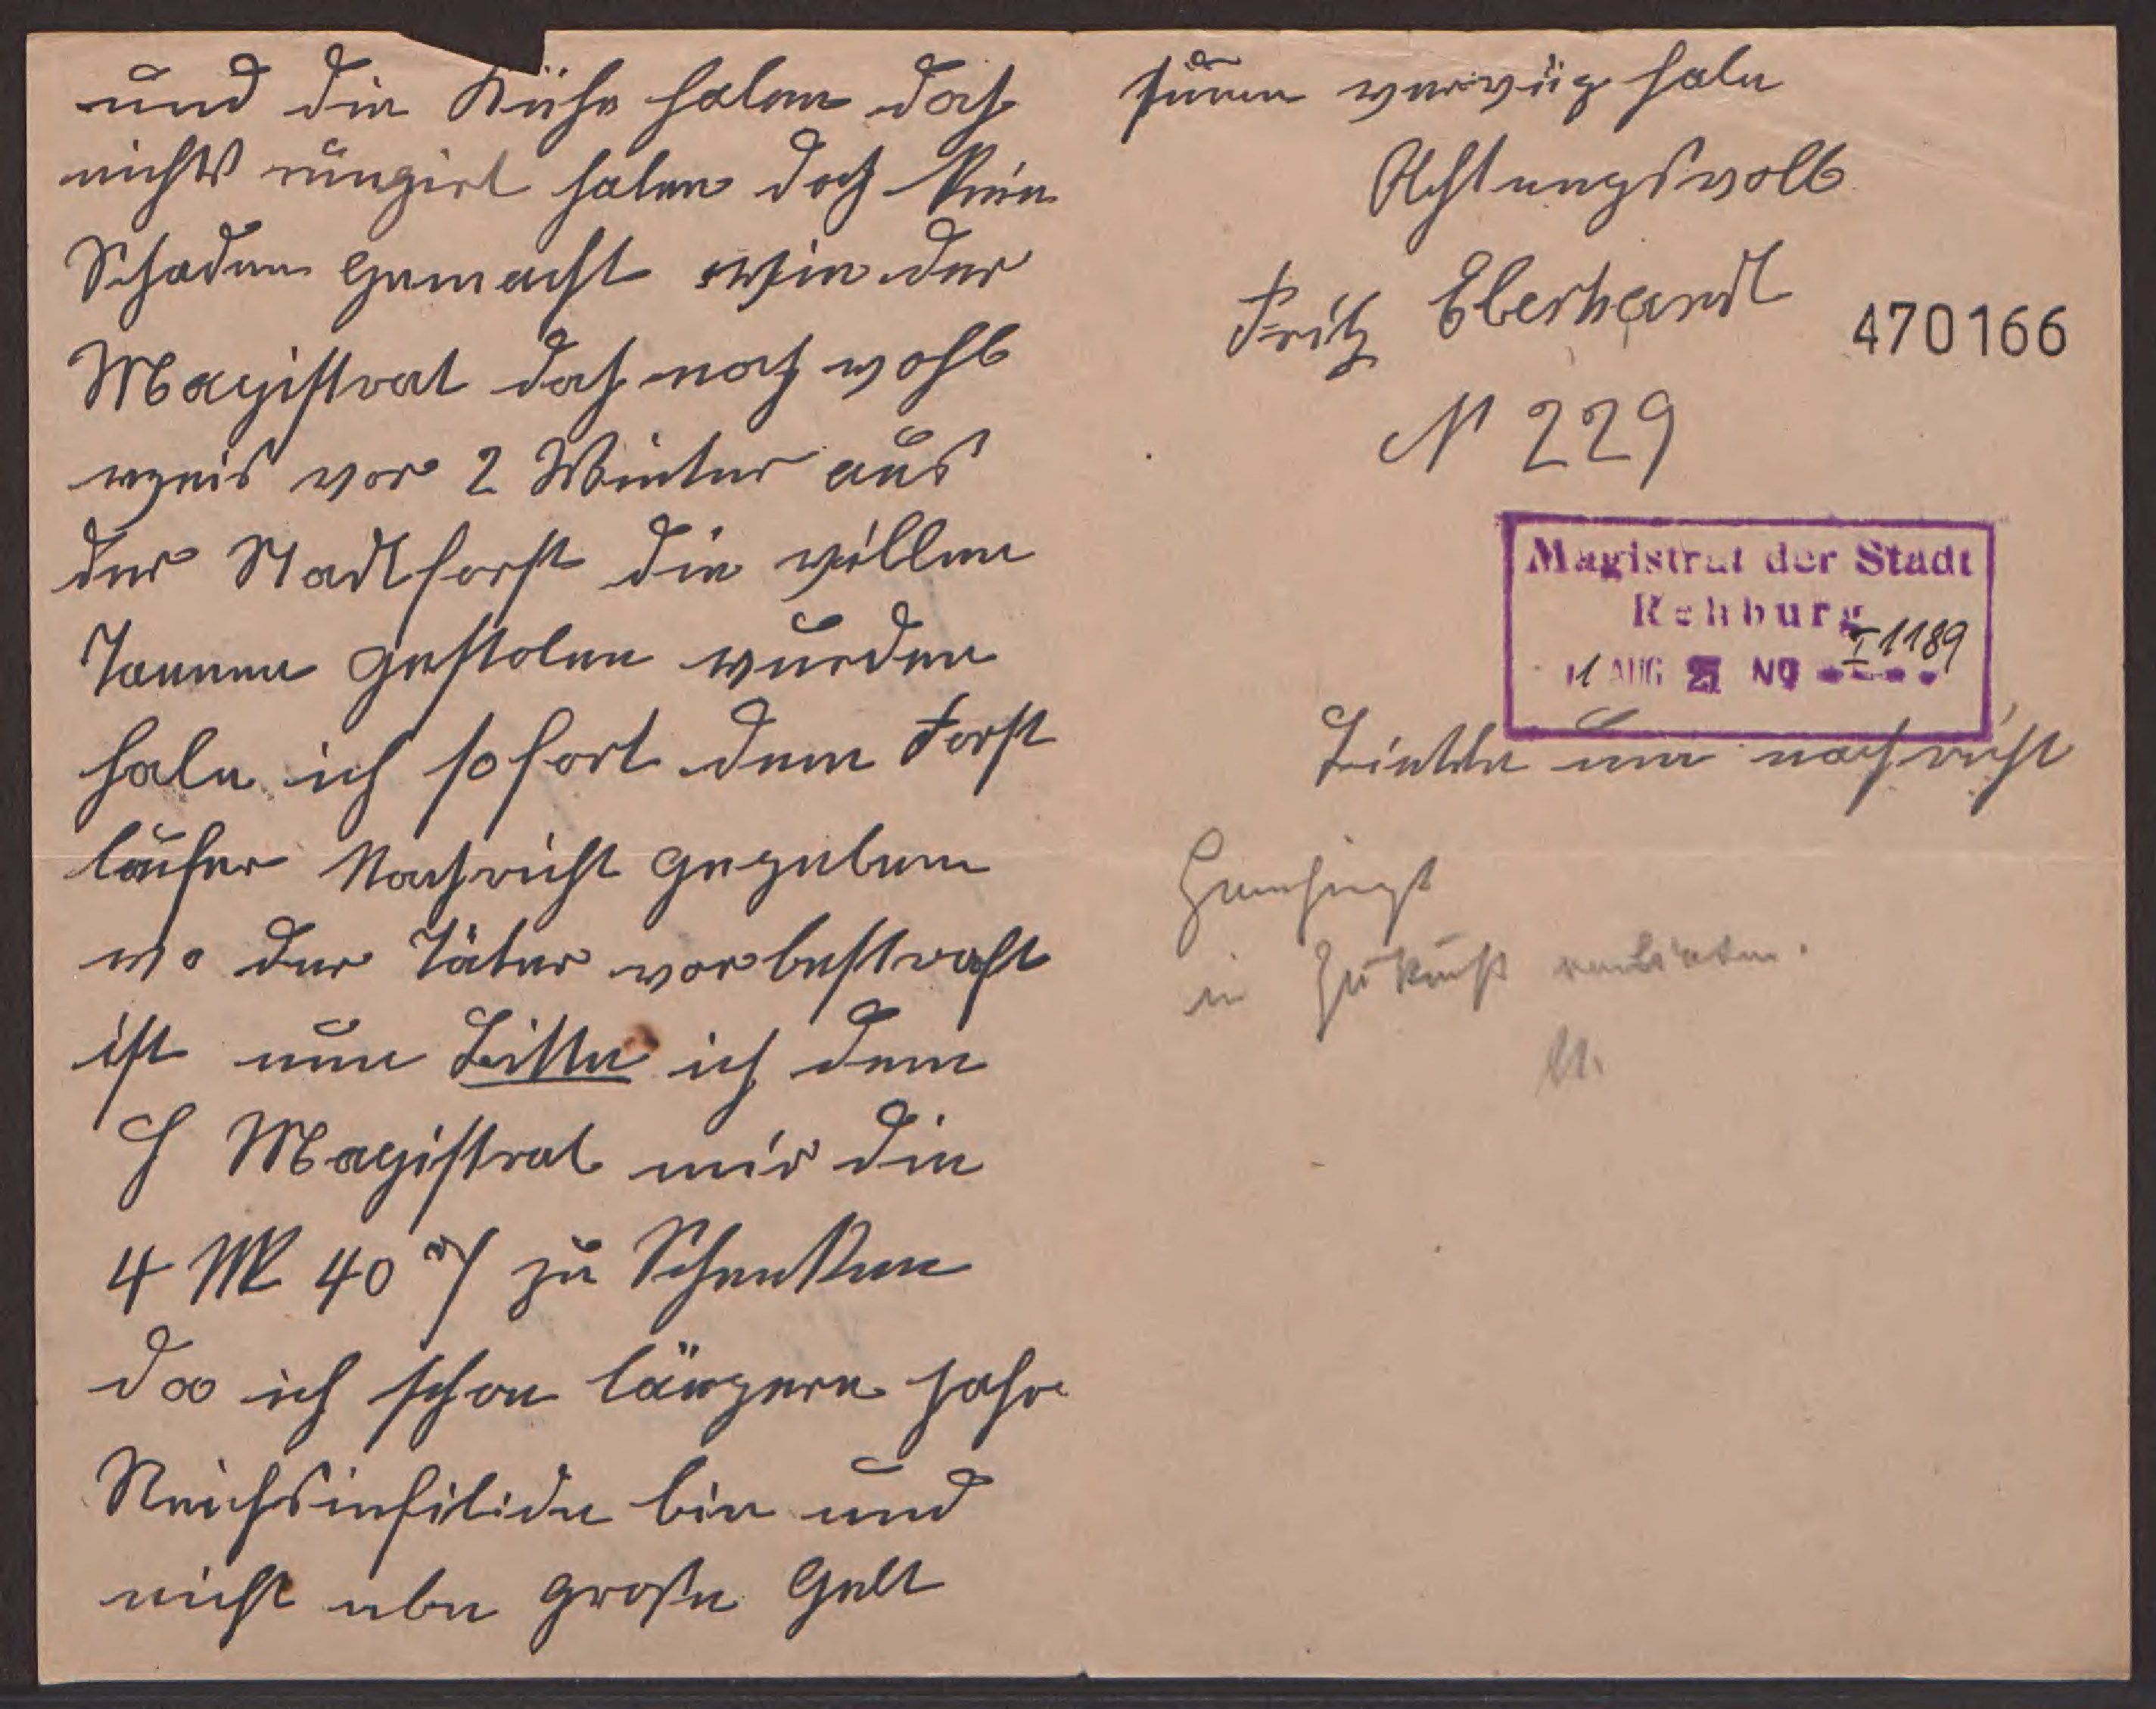 und die Kühe haben doch
nichts rüngirt haben doch kein
Schaden gemacht wie der
Magistrat doch noch wohl
weis vor 2 Winter aus
der Stadtforst die villen
Tannen gestolen wurden
habe ich sofort dem Forst
läufer Nachricht gegeben
wo der Täter vorbestraft
ist nun Bitte ich dem
H Magistrat mir die
4 M 40 ₰ zu Schenken
da ich schon längere jahre
Reichsinfilide bin und
nicht ebe große Gelt
sumen verfüg habe
Achtungsvoll
Fritz Eberhardt
N 229
470166
Magistrat der Stadt
Rehburg
11 AUG 27 No I 1189
Bitte um nachricht
Genehmigt
in Zukunft verbieten.
M.